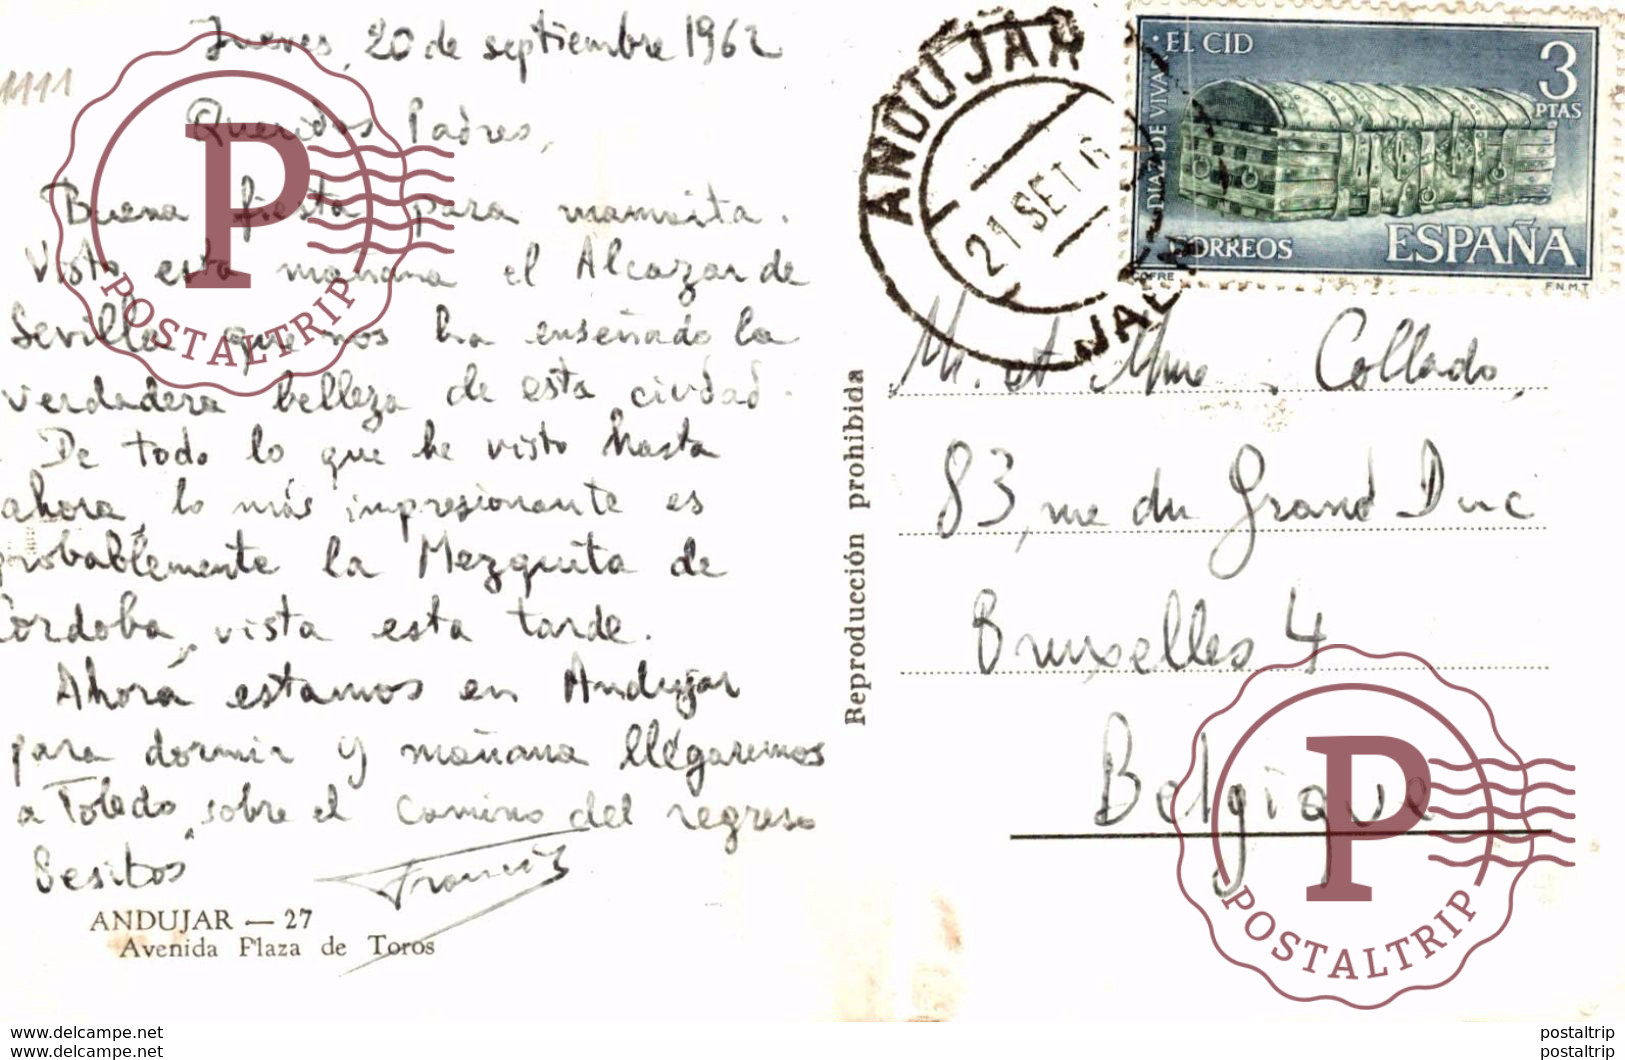 Jueves, 20 de septiembre 1962
1111
Queridos Padres,
Buena fiesta para mamaita.
Visto esta mañana el Alcazar de
Sevilla que nos ha enseñado la
verdadera belleza de esta ciudad.
De todo lo que he visto hasta
ahora, lo más impresionante es
probablemente la Mezquita de
Cordoba, vista esta tarde.
Ahora estamos en Andujar
para dormir y mañana llegaremos
a Toledo, sobre el camino del regreso
Besitos
Francis
ANDUJAR — 27
Avenida Plaza de Toros
Reproducción prohibida
ANDUJAR
21 SET 6
JAEN
EL CID
DIAZ DE VIVAR
3
PTAS
CORREOS
ESPAÑA
COFRE
F.N.M.T
M. et Mme. Collado,
83, rue du Grand Duc
Bruxelles 4
Belgique
P
POSTALTRIP
P
POSTALTRIP
www.delcampe.net
postaltrip
www.delcampe.net
postaltrip